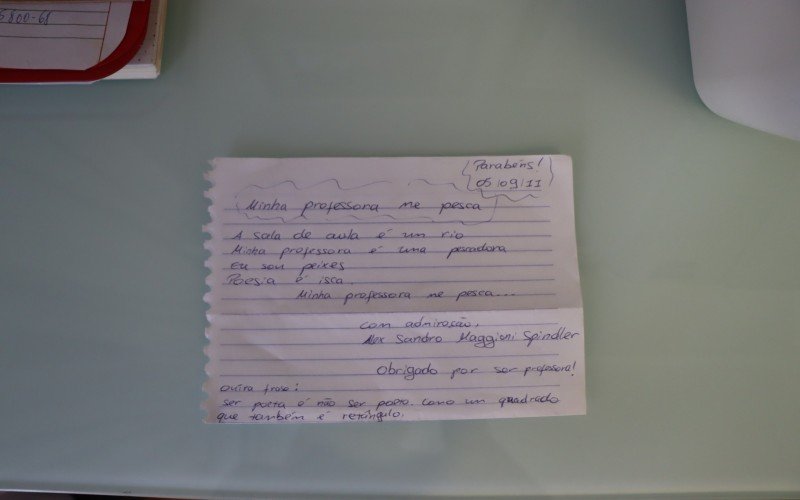 5800-61
Parabéns!
05/09/11
Minha professora me pesca
A sala de aula é um rio
Minha professora é uma pescadora
Eu sou peixes
Poesia é isca.
Minha professora me pesca...
com admiração,
Alex Sandro Maggioni Spindler
Obrigado por ser professora!
Outra frase:
ser poeta é não ser poeta. Como um quadrado
que também é retângulo.